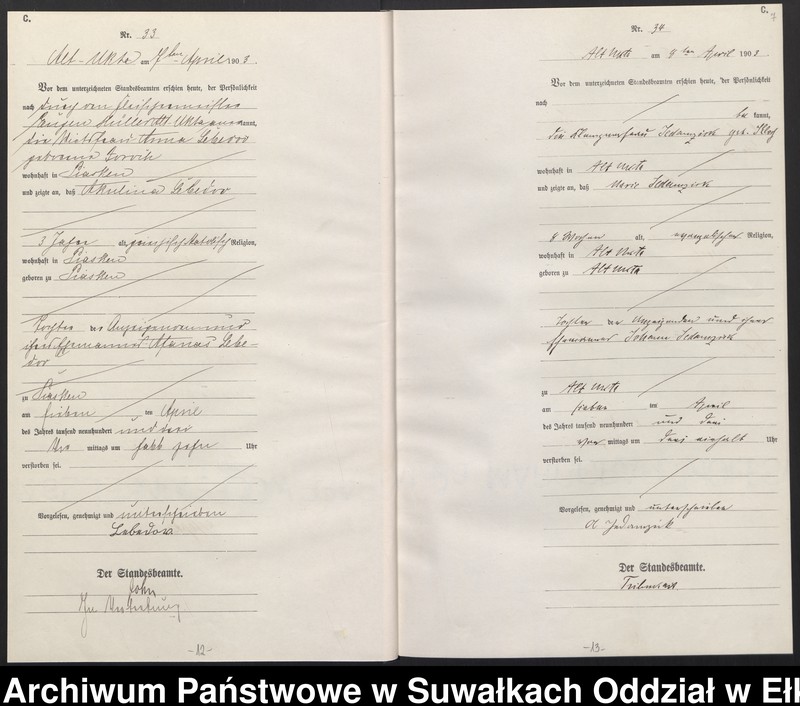 C.
Nr. 33
Alt-Ukta am 7ten April 1903
Vor dem unterzeichneten Standesbeamten erschien heute, der Persönlichkeit
nach durch den Fleischermeister
Eugen Müller Alt Ukta kannt,
die Wirtsfrau Anna Lebedow
geborene
wohnhaft in Piasken
und zeigte an, daß Akulina Lebedow
3 Jahre alt, griechisch katholisch Religion,
wohnhaft in Piasken
geboren zu Piasken
Tochter des Anzeigenden und
ihres Ehemannes Afanas Lebe-
dow
zu Piasken
am sieben ten April
des Jahres tausend neunhundert und drei
Vor mittags um halb zehn Uhr
verstorben sei.
Vorgelesen, genehmigt und unterschrieben
Lebedow
Der Standesbeamte.
In Vertretung
John
-12-
C.
7
Nr. 34
Alt Ukta am 8ten April 1903
Vor dem unterzeichneten Standesbeamten erschien heute, der Persönlichkeit
nach
be kannt,
die Jedamzick geb.
wohnhaft in Alt Ukta
und zeigte an, daß Marie Jedamzick
8 Wochen alt, evangelischer Religion,
wohnhaft in Alt Ukta
geboren zu Alt Ukta
Tochter der Anzeigenden und ihres
Ehemannes Johann Jedamzick
zu Alt Ukta
am sieben ten April
des Jahres tausend neunhundert und drei
Vor mittags um drei einhalb Uhr
verstorben sei.
Vorgelesen, genehmigt und unterschrieben
A Jedamzik
Der Standesbeamte.
-13-
Archiwum Państwowe w Suwałkach Oddział w Ełk